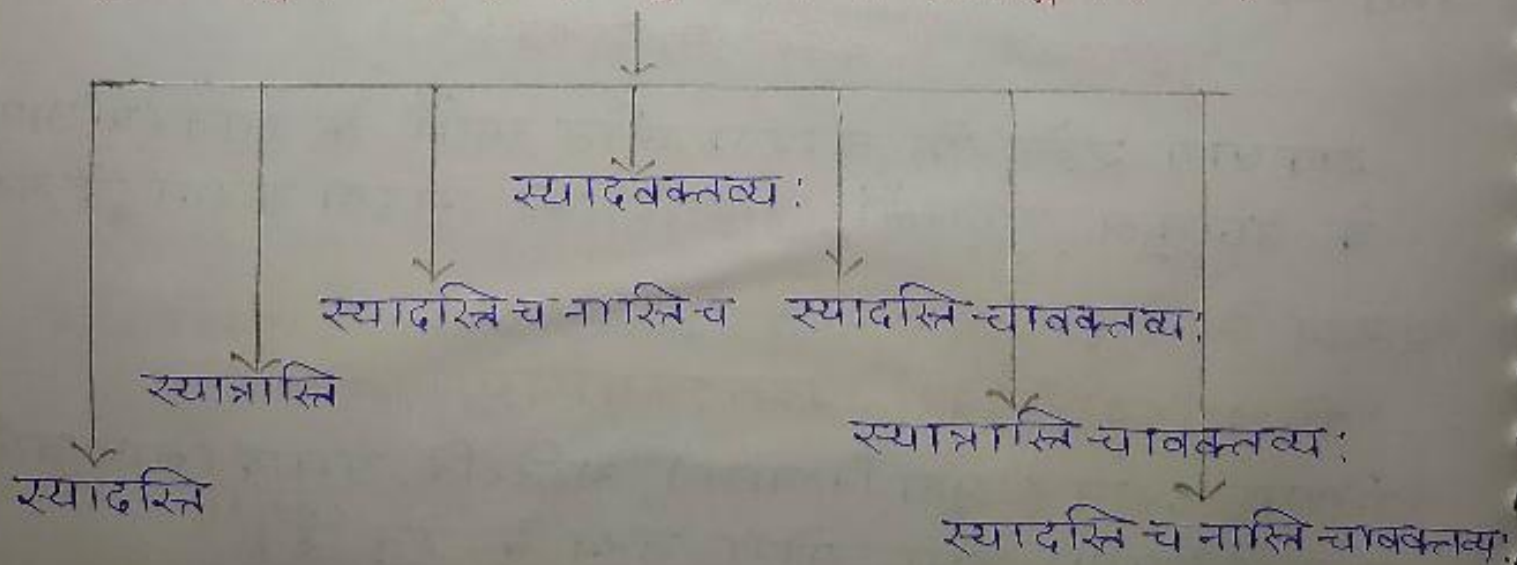 स्यादवक्तव्य:
स्यादस्ति च नास्ति च स्यादस्ति चावक्तव्य:
स्यान्नास्ति
स्यान्नास्ति चावक्तव्य:
स्यादस्ति
स्यादस्ति च नास्ति चावक्तव्य: